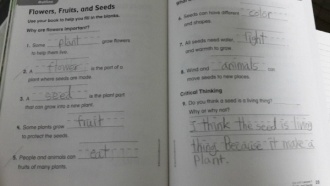 Flowers, Fruits, and Seeds
Use your book to help you fill in the blanks.
Why are flowers important?
1. Some plant grow flowers
to help make
2. A flower is the part of a
plant where seeds are made.
3. A seed is the plant part
that can grow into a new plant.
4. Some plants grow fruit
to protect the seeds.
5. People and animals can eat
fruits of many plants.
6. Seeds can have different color
and shapes.
7. All seeds need water, light
and warmth to grow.
8. Wind and animals can
move seeds to new places.
Critical Thinking
9. Do you think a seed is a living thing?
Why or why not?
I think the seed is living
thing because it make a
plant.